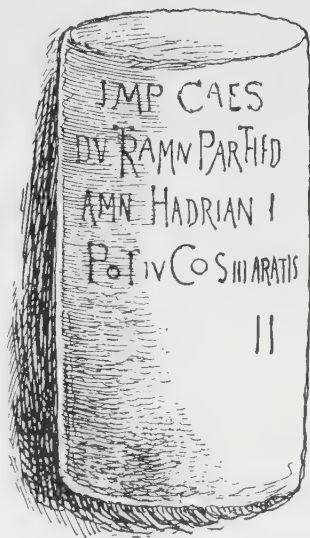 IMP CAES
DV TRAMN PARTHFD
AMN HADRIAN I
PoT IV CoS III ARATIS
II